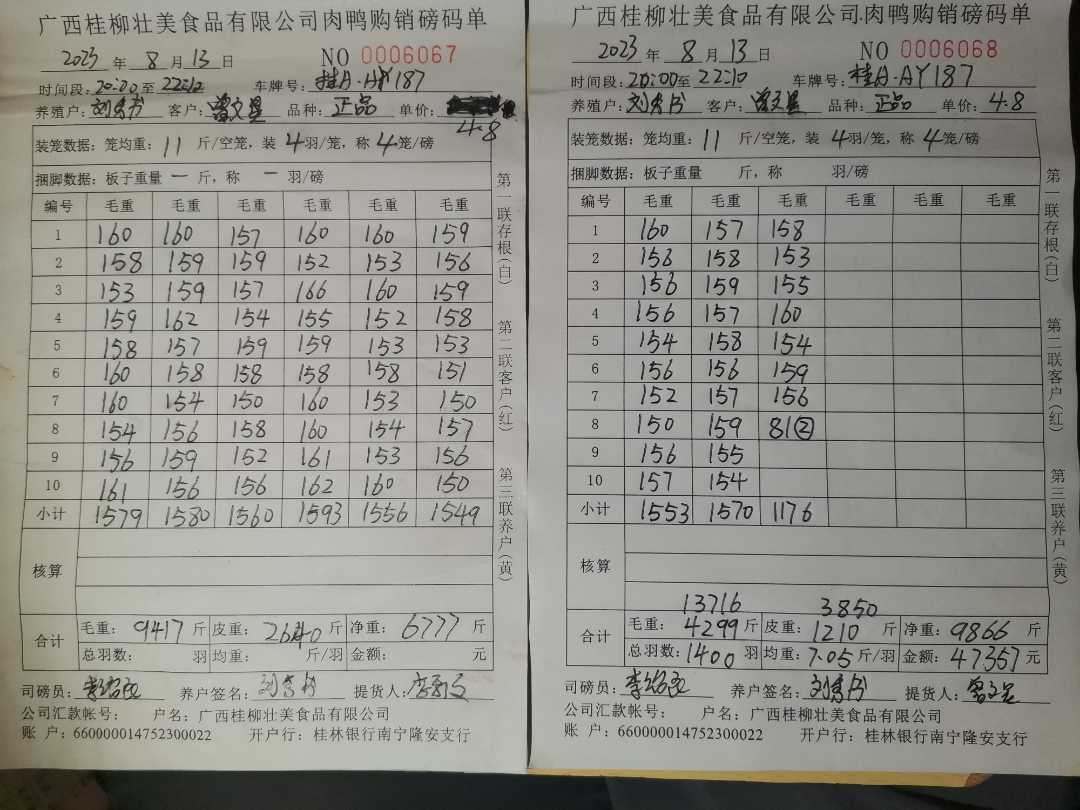 广西桂柳壮美食品有限公司肉鸭购销磅码单
2023 年 8 月 13 日 NO 0006067
时间段: 20:00 至 22:12 车牌号: 桂A·AY187
养殖户: 刘秀书 客户: 曾文星 品种: 正品 单价:
4.8
装笼数据: 笼均重: 11 斤/空笼, 装 4 羽/笼, 称 4 笼/磅
捆脚数据: 板子重量 一 斤, 称 一 羽/磅
编号 毛重 毛重 毛重 毛重 毛重 毛重
1 160 160 157 160 160 159
2 158 159 159 152 153 156
3 153 159 157 166 160 159
4 159 162 154 155 152 158
5 158 157 159 159 153 153
6 160 158 158 158 158 151
7 160 154 150 160 153 150
8 154 156 158 160 154 157
9 156 159 152 161 153 156
10 161 156 156 162 160 150
小计 1579 1580 1560 1593 1556 1549
核算
合计 毛重: 9417 斤 皮重: 2640 斤 净重: 6777 斤
总羽数: 羽 均重: 斤/羽 金额: 元
司磅员: 养户签名: 刘秀书 提货人:
公司汇款帐号: 户名: 广西桂柳壮美食品有限公司
账 户: 660000014752300022 开户行: 桂林银行南宁隆安支行
第一联存根(白) 第二联客户(红) 第三联养户(黄)
广西桂柳壮美食品有限公司肉鸭购销磅码单
2023 年 8 月 13 日 NO 0006068
时间段: 20:00 至 22:10 车牌号: 桂A·AY187
养殖户: 刘秀书 客户: 曾文星 品种: 正品 单价: 4.8
装笼数据: 笼均重: 11 斤/空笼, 装 4 羽/笼, 称 4 笼/磅
捆脚数据: 板子重量 斤, 称 羽/磅
编号 毛重 毛重 毛重 毛重 毛重 毛重
1 160 157 158
2 156 158 153
3 156 159 155
4 156 157 160
5 154 158 154
6 156 156 159
7 152 157 156
8 150 159 81②
9 156 155
10 157 154
小计 1553 1570 1176
核算
13716 3850
合计 毛重: 4299 斤 皮重: 1210 斤 净重: 9866 斤
总羽数: 1400 羽 均重: 7.05 斤/羽 金额: 47357 元
司磅员: 养户签名: 刘秀书 提货人: 曾文星
公司汇款帐号: 户名: 广西桂柳壮美食品有限公司
账 户: 660000014752300022 开户行: 桂林银行南宁隆安支行
第一联存根(白) 第二联客户(红) 第三联养户(黄)